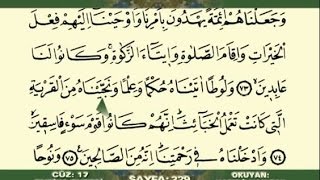 وَجَعَلْنَاهُمْ اَئِمَّةً يَهْدُونَ بِاَمْرِنَا وَاَوْحَيْنَٓا اِلَيْهِمْ فِعْلَ
الْخَيْرَاتِ وَاِقَامَ الصَّلٰوةِ وَا۪يتَٓاءَ الزَّكٰوةِۚ وَكَانُوا لَنَا
عَابِد۪ينَۙ ﴿٧٣﴾ وَلُوطًا اٰتَيْنَاهُ حُكْمًا وَعِلْمًا وَنَجَّيْنَاهُ مِنَ الْقَرْيَةِ
الَّت۪ي كَانَتْ تَعْمَلُ الْخَبَٓائِثَۜ اِنَّهُمْ كَانُوا قَوْمَ سَوْءٍ فَاسِق۪ينَۙ
﴿٧٤﴾ وَاَدْخَلْنَاهُ ف۪ي رَحْمَتِنَاۜ اِنَّهُ مِنَ الصَّالِح۪ينَ۟ ﴿٧٥﴾ وَنُوحًا
CÜZ: 17 SAYFA: 329 OKUYAN: